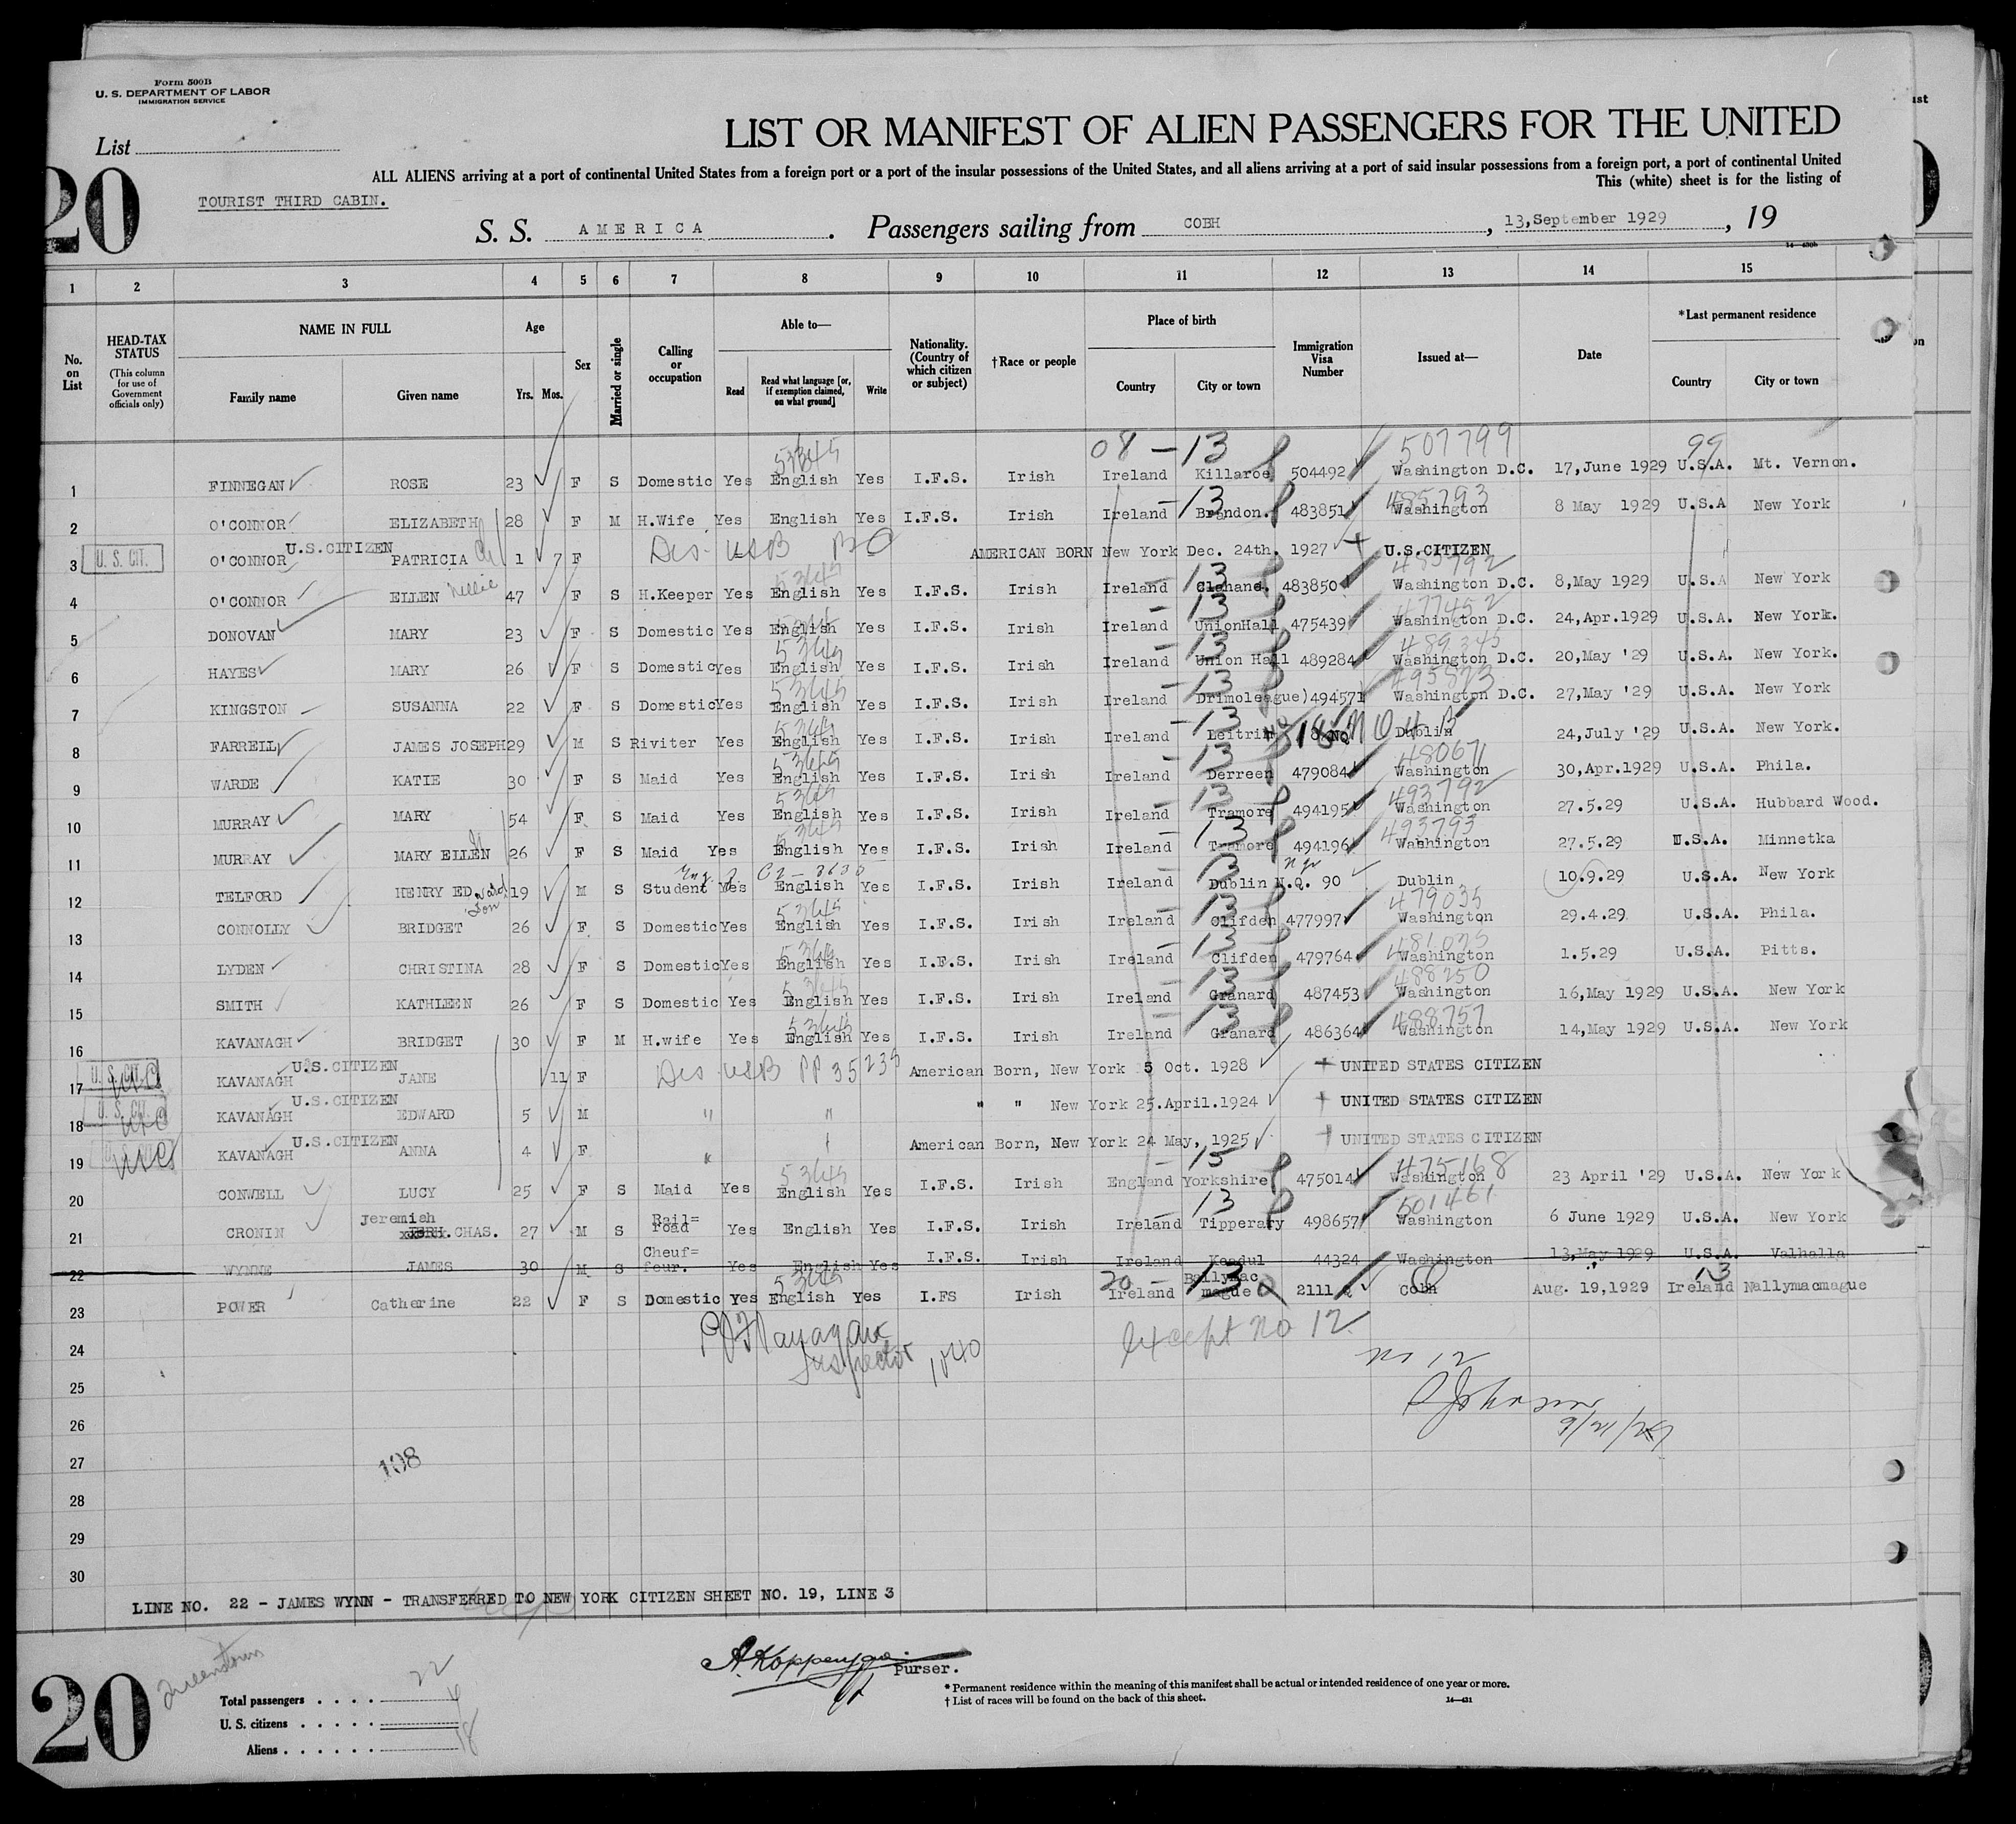 Form 500B
U. S. DEPARTMENT OF LABOR
IMMIGRATION SERVICE
List
20
LIST OR MANIFEST OF ALIEN PASSENGERS FOR THE UNITED
ALL ALIENS arriving at a port of continental United States from a foreign port or a port of the insular possessions of the United States, and all aliens arriving at a port of said insular possessions from a foreign port, a port of continental United
This (white) sheet is for the listing of
TOURIST THIRD CABIN.
S. S. AMERICA. Passengers sailing from COBH, 13,September 1929, 19
14—430b
1 2 3 4 5 6 7 8 9 10 11 12 13 14 15
No. on List
HEAD-TAX STATUS (This column for use of Government officials only)
NAME IN FULL Family name Given name
Age Yrs. Mos.
Sex
Married or single
Calling or occupation
Able to— Read Read what language [or, if exemption claimed, on what ground] Write
Nationality. (Country of which citizen or subject)
†Race or people
Place of birth Country City or town
Immigration Visa Number
Issued at—
Date
*Last permanent residence Country City or town
08 - 13 507799 99
1 FINNEGAN ROSE 23 F S Domestic Yes English Yes I.F.S. Irish Ireland Killaroe 504492 Washington D.C. 17,June 1929 U.S.A. Mt. Vernon.
13 485793
2 O'CONNOR ELIZABETH 28 F M H.Wife Yes English Yes I.F.S. Irish Ireland Brandon. 483851 Washington 8 May 1929 U.S.A New York
3 U. S. CIT. O'CONNOR U.S.CITIZEN PATRICIA 1 7 F Dis- USB AMERICAN BORN New York Dec. 24th. 1927 U.S.CITIZEN
5364S 13 485792
4 O'CONNOR ELLEN Nellie 47 F S H.Keeper Yes English Yes I.F.S. Irish Ireland Clahane. 483850 Washington D.C. 8,May 1929 U.S.A New York
13 477452
5 DONOVAN MARY 23 F S Domestic Yes English Yes I.F.S. Irish Ireland UnionHall 475439 Washington D.C. 24,Apr.1929 U.S.A. New York.
13 489345
6 HAYES MARY 26 F S Domestic Yes English Yes I.F.S. Irish Ireland Union Hall 489284 Washington D.C. 20,May '29 U.S.A. New York.
13 495873
7 KINGSTON SUSANNA 22 F S Domestic Yes English Yes I.F.S. Irish Ireland Drimoleague) 494571 Washington D.C. 27,May '29 U.S.A. New York
13
8 FARRELL JAMES JOSEPH 29 M S Riviter Yes English Yes I.F.S. Irish Ireland Leitrim Dublin 24,July '29 U.S.A. New York.
13 480671
9 WARDE KATIE 30 F S Maid Yes English Yes I.F.S. Irish Ireland Derreen 479084 Washington 30,Apr.1929 U.S.A. Phila.
13 493792
10 MURRAY MARY 54 F S Maid Yes English Yes I.F.S. Irish Ireland Tramore 494195 Washington 27.5.29 U.S.A. Hubbard Wood.
13 493793
11 MURRAY MARY ELLEN 26 F S Maid Yes English Yes I.F.S. Irish Ireland Tramore 494196 Washington 27.5.29 U.S.A. Minnetka
13
12 TELFORD HENRY ED. 19 M S Student Yes English Yes I.F.S. Irish Ireland Dublin N.Q. 90 Dublin 10.9.29 U.S.A. New York
13 479035
13 CONNOLLY BRIDGET 26 F S Domestic Yes English Yes I.F.S. Irish Ireland Clifden 477997 Washington 29.4.29 U.S.A. Phila.
13 481025
14 LYDEN CHRISTINA 28 F S Domestic Yes English Yes I.F.S. Irish Ireland Clifden 479764 Washington 1.5.29 U.S.A. Pitts.
13 488250
15 SMITH KATHLEEN 26 F S Domestic Yes English Yes I.F.S. Irish Ireland Granard 487453 Washington 16,May 1929 U.S.A. New York
13 488757
16 KAVANAGH BRIDGET 30 F M H.wife Yes English Yes I.F.S. Irish Ireland Granard 486364 Washington 14,May 1929 U.S.A. New York
17 U. S. CIT. KAVANAGH U.S.CITIZEN JANE 11 F Dis USB PP 35235 American Born, New York 5 Oct. 1928 UNITED STATES CITIZEN
18 U. S. CIT. KAVANAGH U.S.CITIZEN EDWARD 5 M " " " " New York 25.April.1924 UNITED STATES CITIZEN
19 KAVANAGH U.S.CITIZEN ANNA 4 F " American Born, New York 24 May, 1925 UNITED STATES CITIZEN
5364S 15 475168
20 CONWELL LUCY 25 F S Maid Yes English Yes I.F.S. Irish England Yorkshire 475014 Washington 23 April '29 U.S.A. New York
13 501461
21 CRONIN Jeremiah CHAS. 27 M S Rail= road Yes English Yes I.F.S. Irish Ireland Tipperary 498657 Washington 6 June 1929 U.S.A. New York
22 WYNNE JAMES 30 M S Cheuf= feur. Yes English Yes I.F.S. Irish Ireland Keadul 44324 Washington 13,May 1929 U.S.A. Valhalla
20 - 13 13
23 POWER Catherine 22 F S Domestic Yes English Yes I.FS Irish Ireland Ballymac mague 2111 Cobh Aug. 19,1929 Ireland Nallymacmague
24 Inspector 1040 except no 12
no 12
25
26
27 108
28
29
30
LINE NO. 22 - JAMES WYNN - TRANSFERRED TO NEW YORK CITIZEN SHEET NO. 19, LINE 3
20
Queenstown
Total passengers . . . . 22
U. S. citizens . . . . . 4
Aliens . . . . . . 18
Purser.
* Permanent residence within the meaning of this manifest shall be actual or intended residence of one year or more.
† List of races will be found on the back of this sheet.
14—431